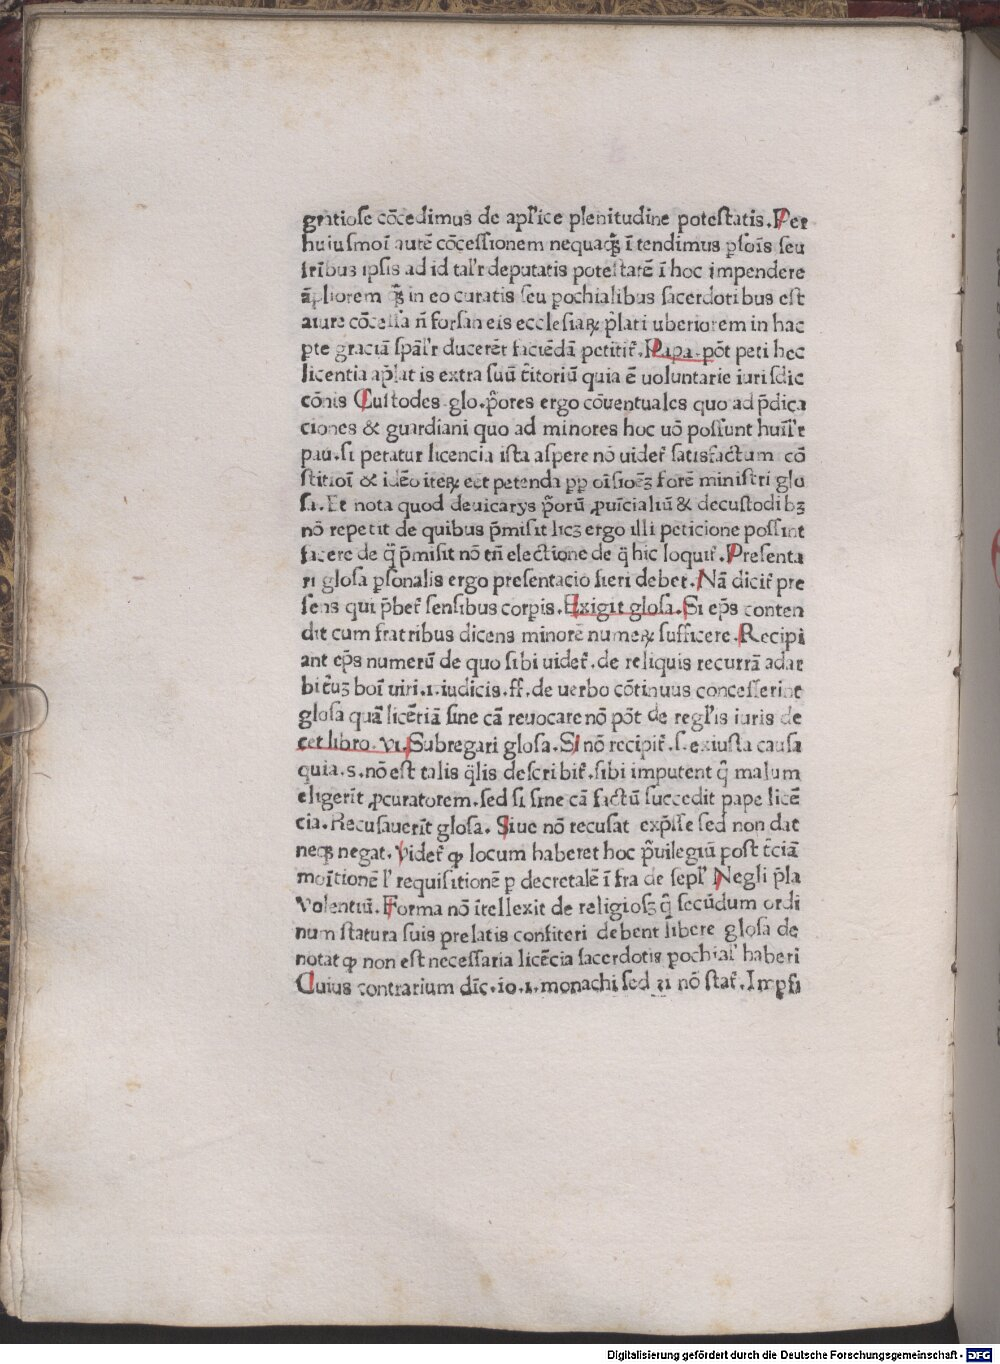 gratiose cōcedimus de apl'ice plenitudine potestatis. Per
huiusmoī autē cōcessionem nequaq̄ꝫ ī tendimus ꝑsoīs seu
fr̄ibus ipsis ad id tal'r deputatis potestatē ī hoc impendere
āpliorem q̄ꝫ in eo curatis seu ꝑochialibus sacerdotibus est
a iure cōcessa n̄ forsan eis ecclesiaꝝ p̄lati uberiorem in hac
ꝑte graciā spāl'r ducerēt faciēdā petitir̄. Papa. pōt peti hec
licentia ap̄lat is extra suū t̄itoriū quia ē uoluntarie iurisdic
cōnis Custodes glo. p̄ores ergo cōuentuales quo ad p̄dica
ciones & guardiani quo ad minores hoc uō possunt huil'r
pau. si petatur licencia ista aspere nō uidet̄ satisfactum cō
stitioī & idēo iteꝝ eēt petenda ꝑp oīsioēꝫ forē ministri glo
sa. Et nota quod deuicarys p̄orū ꝓuīcialiū & decustodibꝫ
nō repetit de quibus p̄misit licꝫ ergo illi peticione possint
facere de q̄ p̄misit nō tn̄ electione de q̄ hic loquit̄. Presenta
ri glosa ꝑsonalis ergo presentacio fieri debet. Nā dicit̄ pre
sens qui p̄bet̄ sensibus corꝑis. Exigit glosa. Si ep̄s conten
dit cum fratribus dicens minorē numeꝝ sufficere. Recipi
ant ep̄s numerū de quo sibi uidet̄. de reliquis recurrā ad ar
bit̄iuꝫ boī uiri. 1. iudicis. ff. de uerbo cōtinuus concesserint
glosa quā licētiā sine cā reuocare nō pōt de regl'is iuris de
cet libro. vi. Subregari glosa. Si nō recipit̄. s. ex iusta causa
quia. s. nō est talis q̄lis describit̄. sibi imputent q̄ malum
eligerīt ꝓcuratorem. sed si sine cā factū succedit pape licē
cia. Recusauerīt glosa. Siue nō recusat exp̄sse sed non dat
neqꝫ negat. Videt̄ ꝙ locum haberet hoc p̄uilegiū post t̄ciā
moītionē l' requisitionē ꝑ decretalē ī fra de sepl' Negli p̄la
Volentiū. Forma nō ītellexit de religiosꝫ q̄ secūdum ordi
num statura suis prelatis confiteri debent libere glosa de
notat ꝙ non est necessaria licēcia sacerdotis ꝑochial' haberi
Cuius contrarium dīc. io. 1. monachi sed zi nō stat̄. Impsi
Digitalisierung gefördert durch die Deutsche Forschungsgemeinschaft - DFG